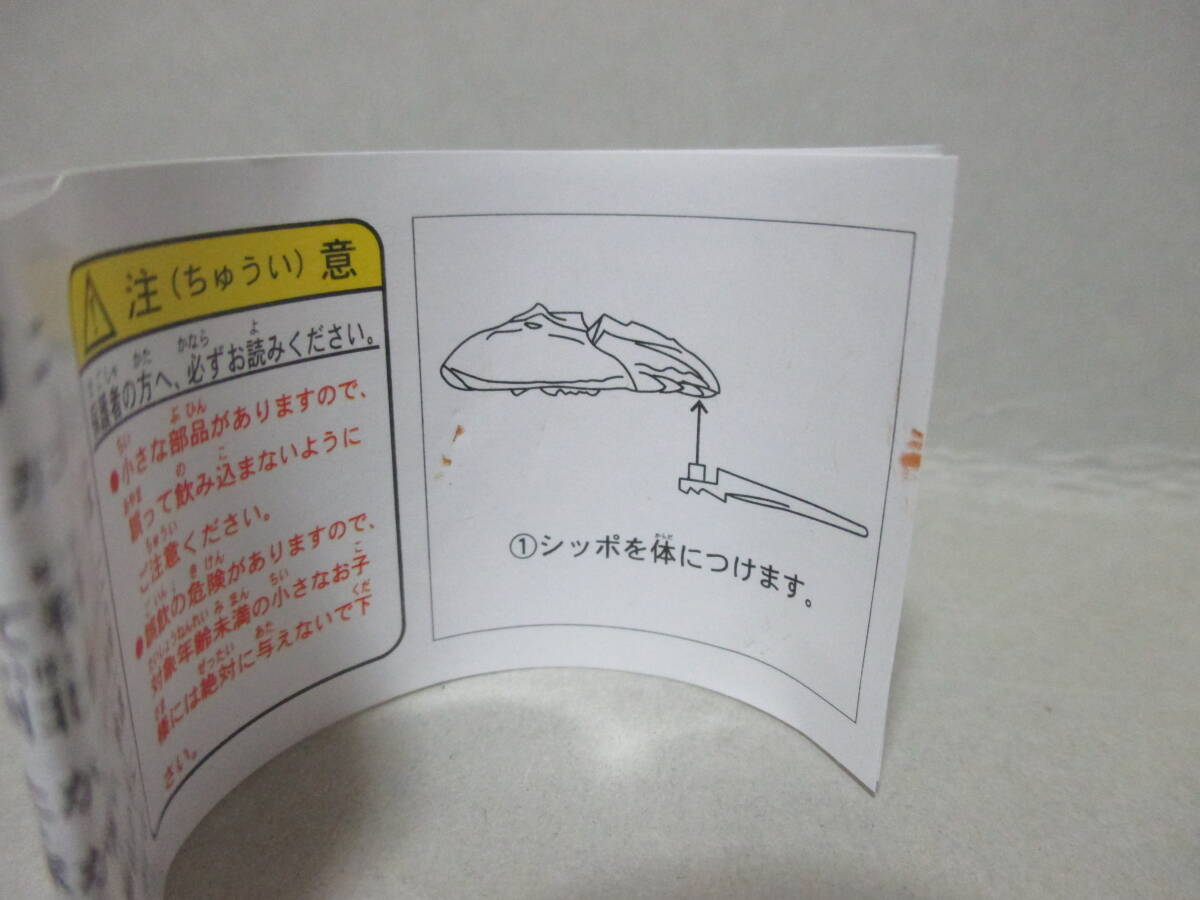 注(ちゅうい)意
保護者の方へ、必ずお読みください。
●小さな部品がありますので、
誤って飲み込まないように
ご注意ください。
●誤飲の危険がありますので、
対象年齢未満の小さなお子
様には絶対に与えないで下
さい。
①シッポを体につけます。